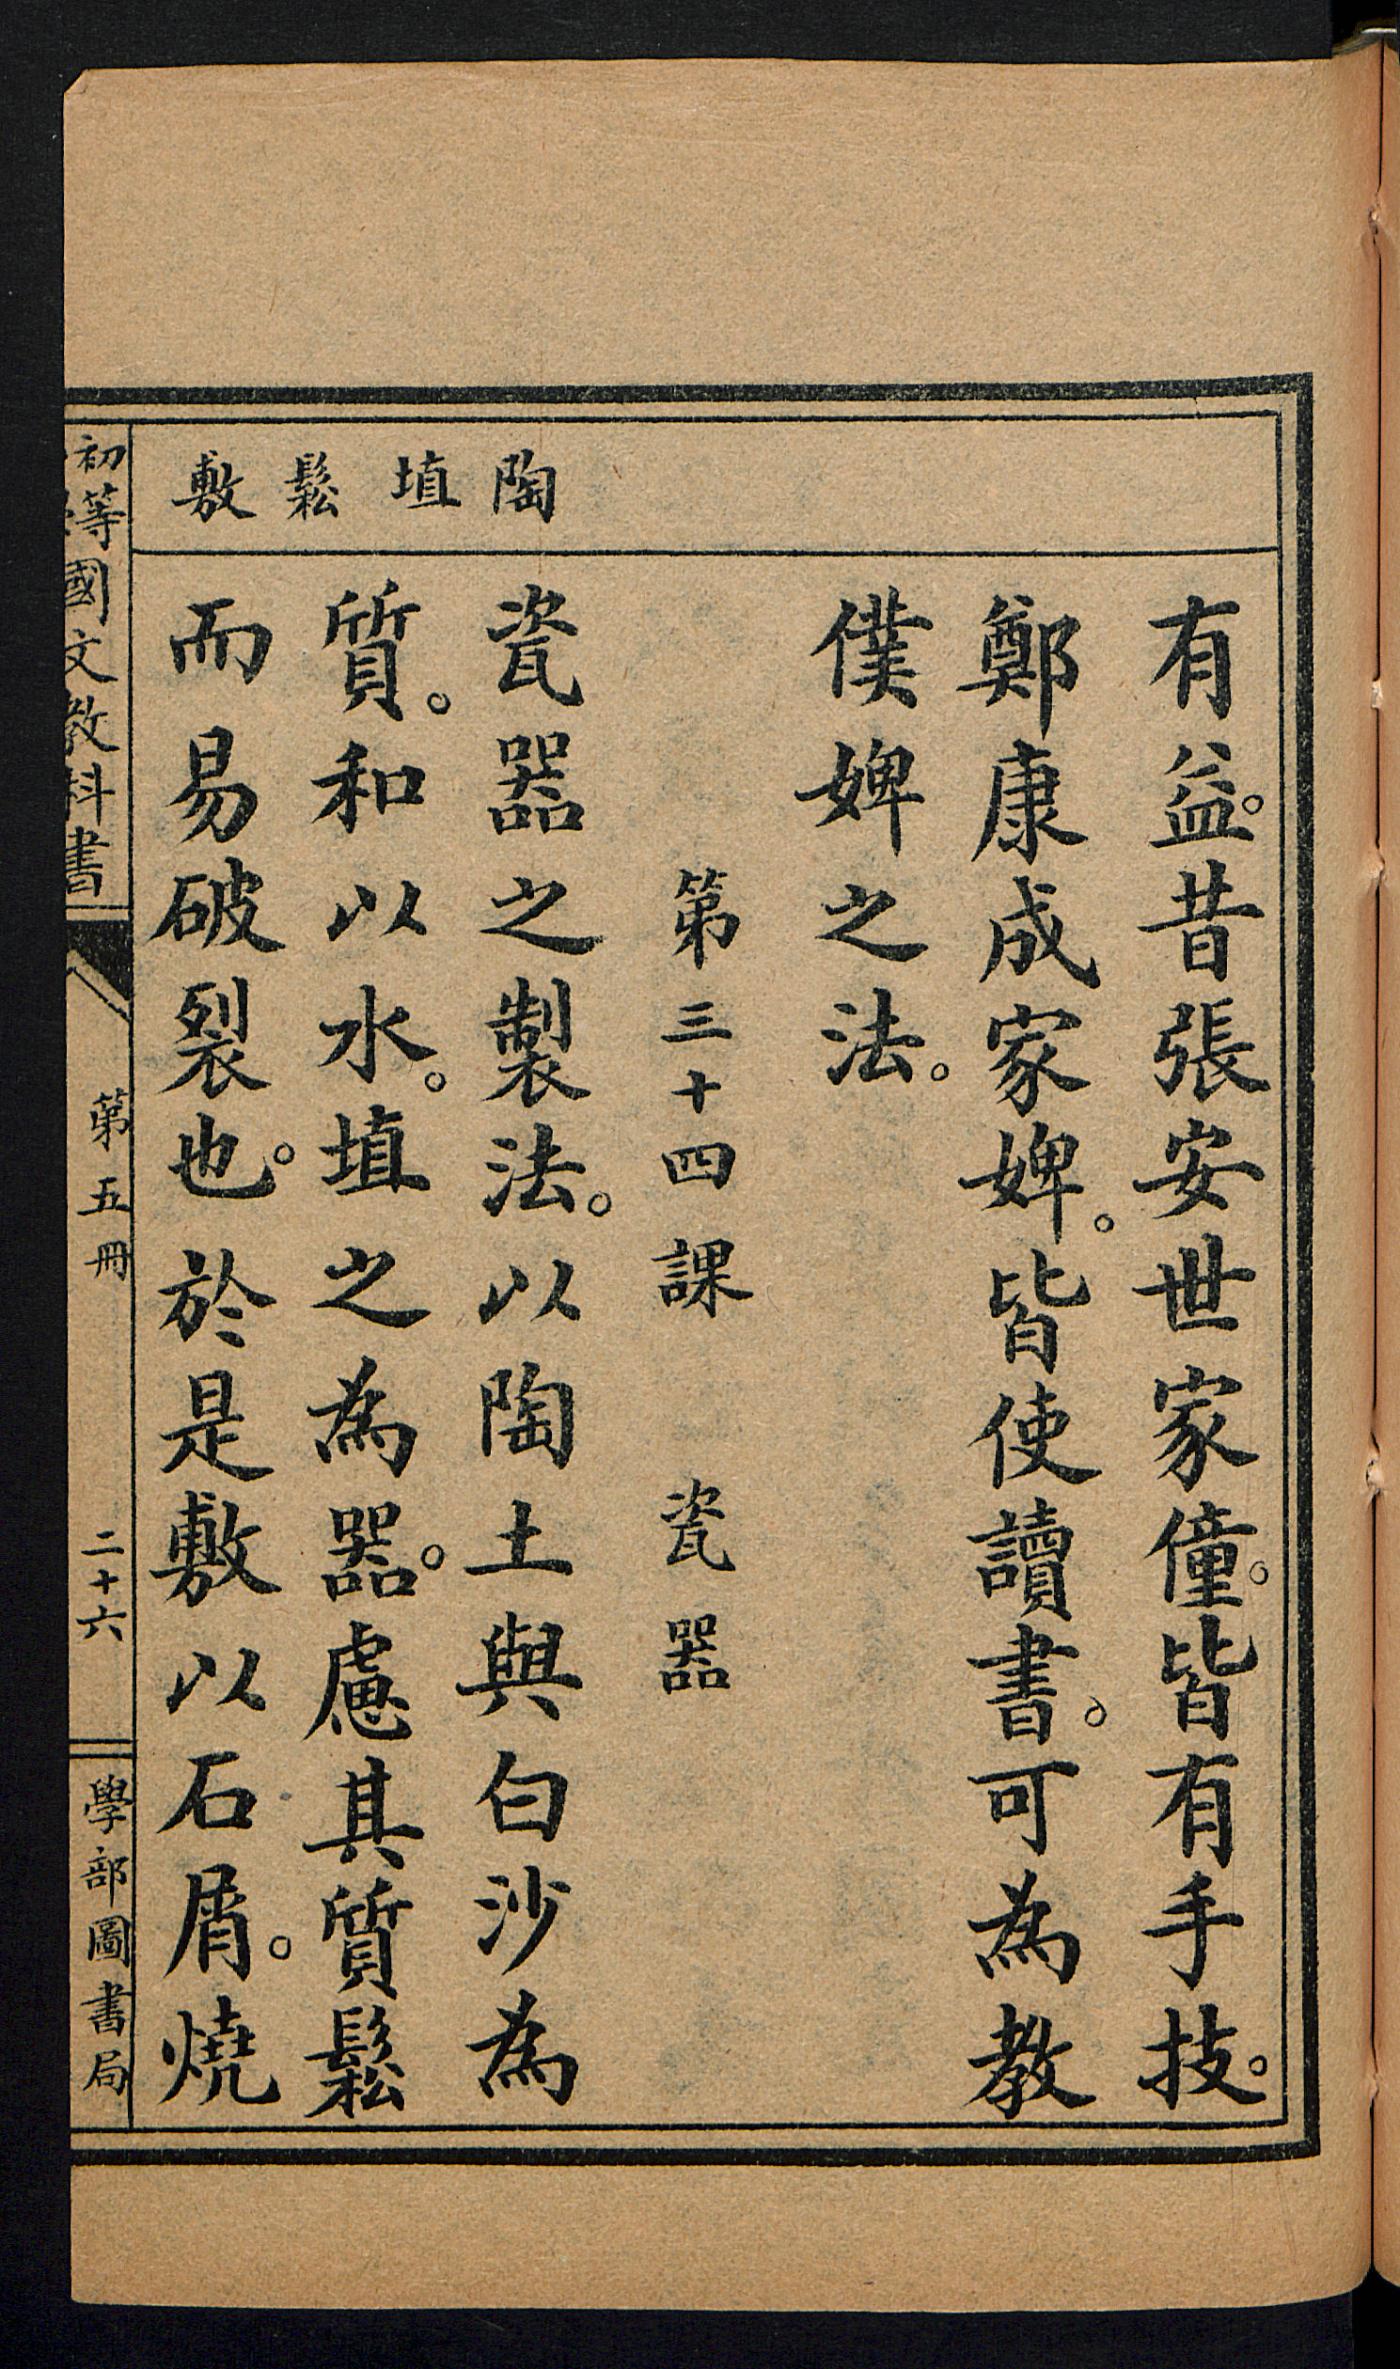 陶埴鬆敷
有益。昔張安世家僮。皆有手技。
鄭康成家婢。皆使讀書。可為教
僕婢之法。
第三十四課 瓷器
瓷器之製法。以陶土與白沙為
質。和以水。埴之為器。慮其質鬆
而易破裂也。於是敷以石屑。燒
初等國文教科書 第五冊 二十六 學部圖書局